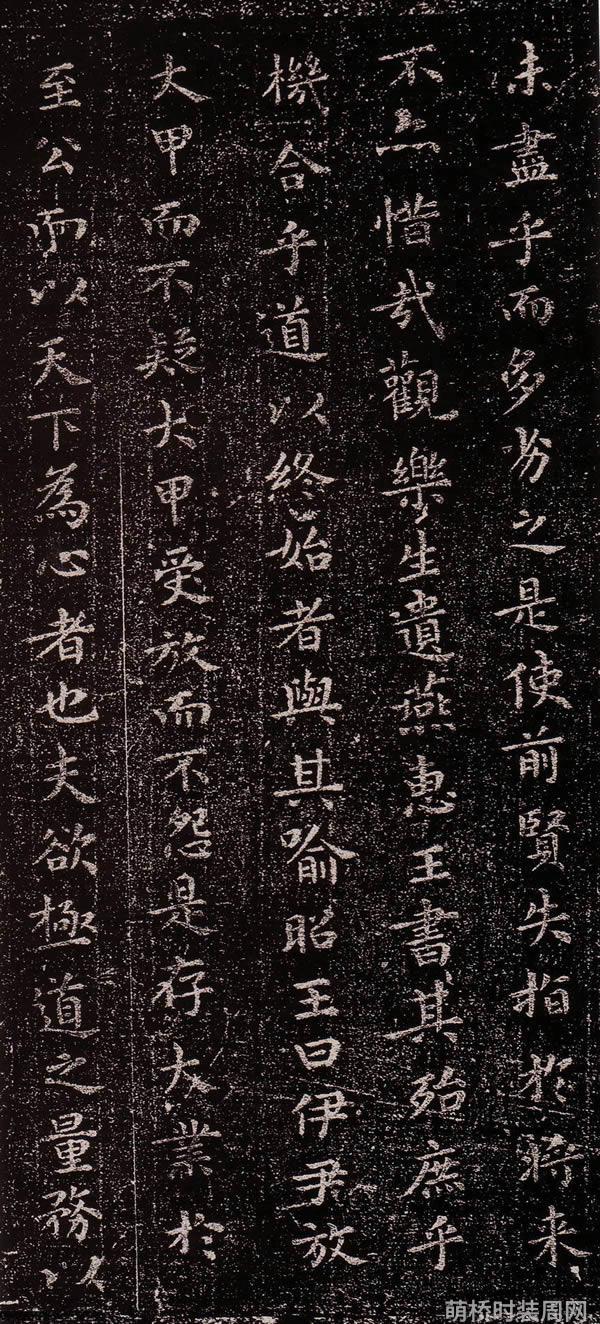 未盡乎而多劣之是使前賢失指於將来
不亦惜哉觀樂生遺燕惠王書其殆庶乎
機合乎道以終始者與其喻昭王曰伊尹放
大甲而不疑大甲受放而不怨是存大業於
至公而以天下為心者也夫欲極道之量務以
萌桥时装周网